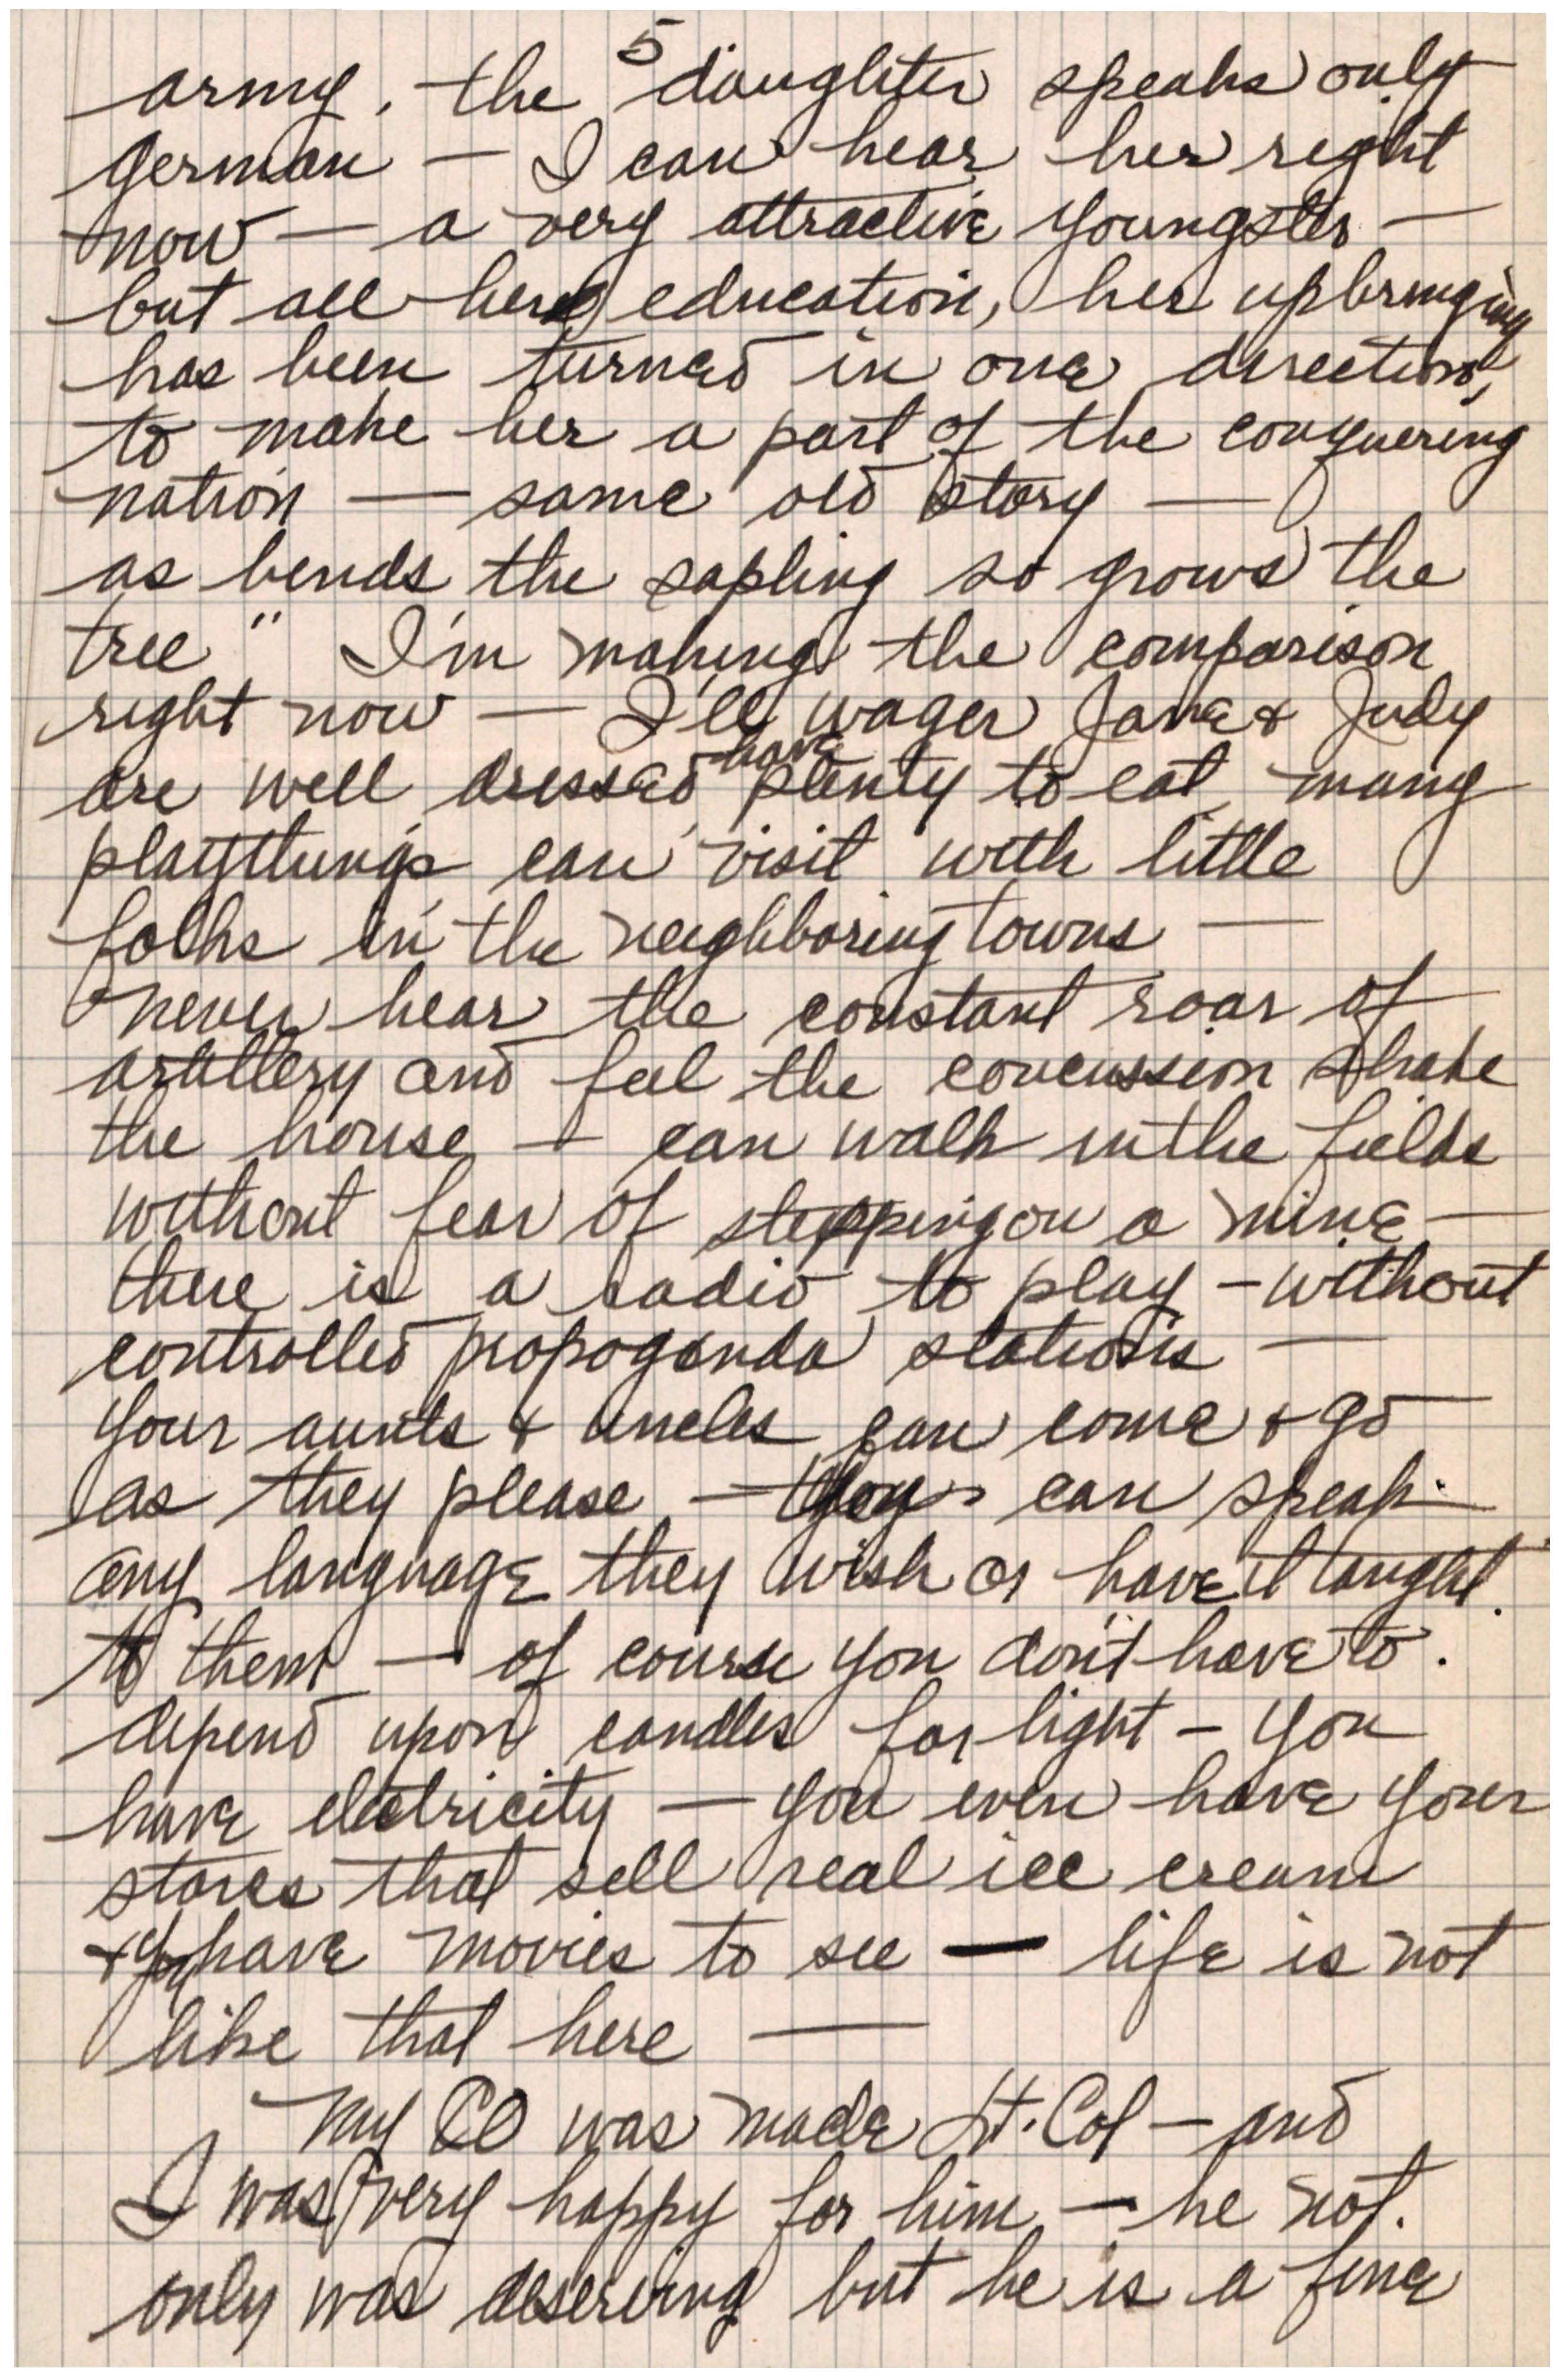 5
army, the daughter speaks only
German — I can hear her right
now — a very attractive youngster —
but all her education, her upbringing
has been turned in one direction,
to make her a part of the conquering
nation — same old story —
as bends the sapling so grows the
tree" I'm making the comparison
right now — I'll wager Jane & Judy
are well dressed have plenty to eat, many
playthings, can visit with little
folks in the neighboring towns —
never hear the constant roar of
artillery and feel the concussion shake
the house — can walk in the fields
without fear of stepping on a mine —
there is a radio to play – without
controlled propoganda stations —
your aunts & uncles can come & go
as they please — they can speak
any language they wish or have it taught
to them — of course you don't have to
depend upon candles for light – you
have electricity — you even have your
stores that sell real ice cream
& you have movies to see — life is not
like that here —
My CO was made Lt. Col — and
I was very happy for him — he not
only was deserving but he is a fine